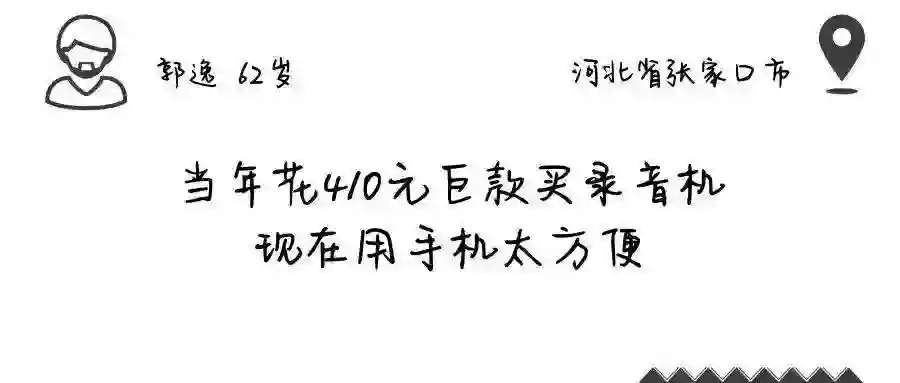 郭逸 62岁
河北省张家口市
当年花410元巨款买录音机
现在用手机太方便